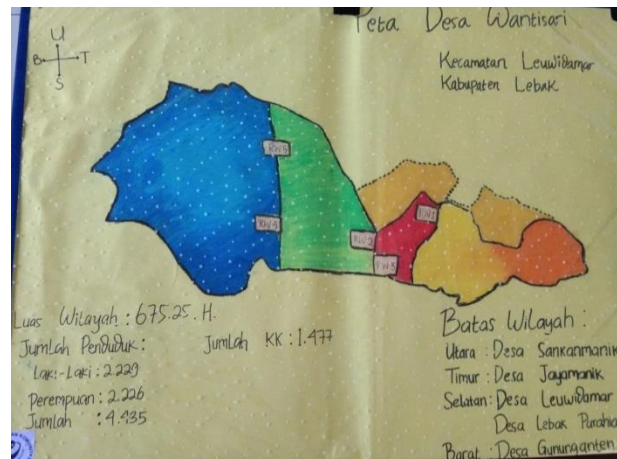 Peta Desa Wantisari
Kecamatan Leuwidamar
Kabupaten Lebak
U
B T
S
RW 5
RW 4
RW 2
RW 1
RW 3
Luas Wilayah : 675.25.H.
Jumlah Penduduk :
Laki-Laki : 2.229
Perempuan : 2.226
Jumlah : 4.435
Jumlah KK : 1.477
Batas Wilayah :
Utara : Desa Sankanmanik
Timur : Desa Jayamanik
Selatan : Desa Leuwidamar
Desa Lebak Parahia
Barat : Desa Gununganten